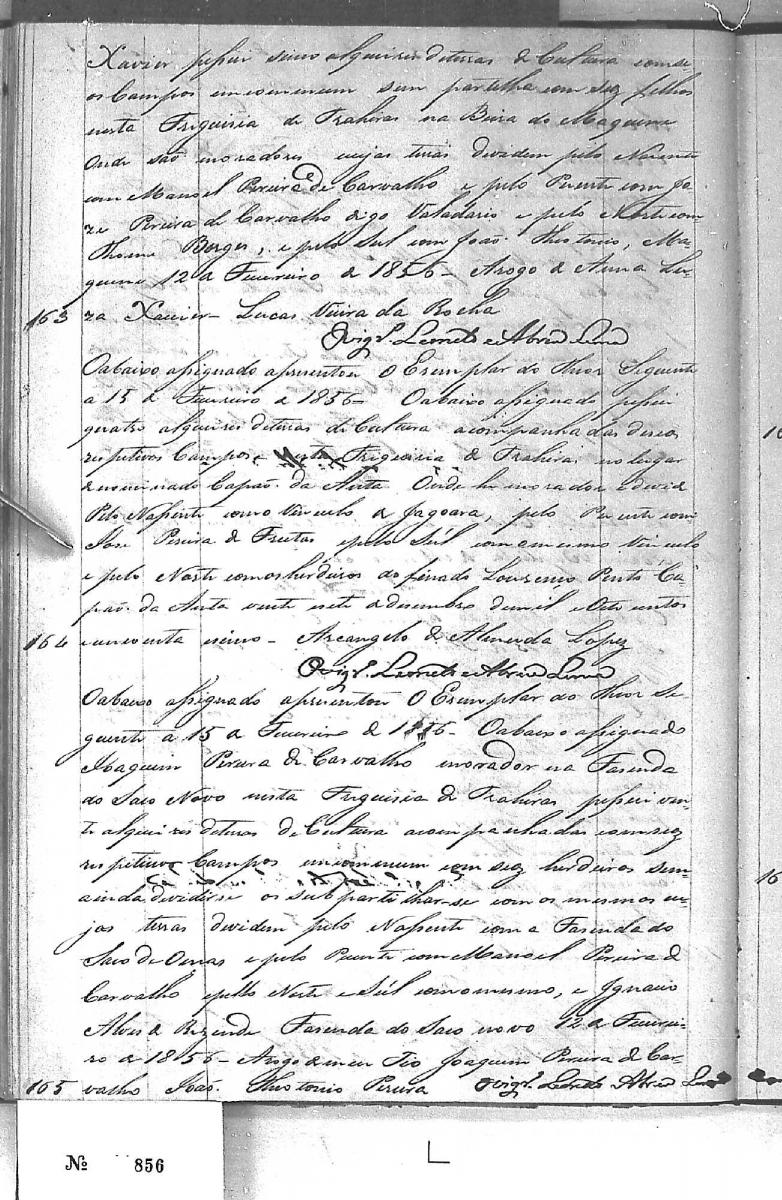 Xavier pessui sinco alqueires de terras de Cultura com se
os Campos em commum sem partilha com sez filhos
nesta Friguisia de Trahiras na Beira do Maquine
Onde são moradores cujas terras dividem pelo Nacente
com Manoel Pereira de Carvalho e pelo Puente com Jo-
ze Pereira de Carvalho digo Valadario e pelo Norte com
Thome Borges, e pelo Sul com João Theotonio, Ma-
quine 12 de Fevereiro de 1856 - Arogo de Anna Lu-
163 za Xavier - Lucas Vieira da Rocha
Ovigr.º Leonel de Abreu Lima
Oabaixo assignado apresentou O Exemplar do Theor Seguinte
a 15 de Fevereiro de 1856 - Oabaixo assignado pessui
quatro alqueires de terras de Cultura acompanhadas de seos
respetivos Campos nesta Friguisia de Trahiras no lugar
denominado Capão da Anta Onde he morador e devide
Pelo Nassente com o Vinculo de Jagoara, pelo Puente com
Jose Pereira de Freitas e pelo Súl com o mesmo Vinculo
e pelo Norte com os herdeiros do finado Lourenço Pinto Ca-
pão da Anta vinte sete de desembro de mil e Oito centos
164 e cincoenta e sinco - Arcangelo de Almeida Lopez
Ovigr.º Leonel de Abreu Lima
Oabaixo assignado apresentou O Exemplar do Theor Se-
guinte a 15 de Fevereiro de 1856 - Oabaixo assignado
Joaquim Pereira de Carvalho morador na Fasenda
do Saco Novo nesta Friguisia de Trahiras pessui vin-
te alqueires de terras de Cultura acompanhadas com sez
respetivos Campos em commum com sez herdeiros sem
ainda dividirse os sub partilhar-se com os mesmos cu-
jas terras dividem pelo Nassente com a Fasenda do
Saco de e pelo Puente com Manoel Pereira de
Carvalho e pello Norte e Súl com o mesmo, e Ignacio
Alves de Rezende Fasenda do Saco novo 12 de Feverei-
ro de 1856 - Arogo de meu Tio Joaquim Pereira de Car-
165 valho João Theotonio Pereira Ovigr.º Leonel de Abreu Lima
16
16
Nº 856
L